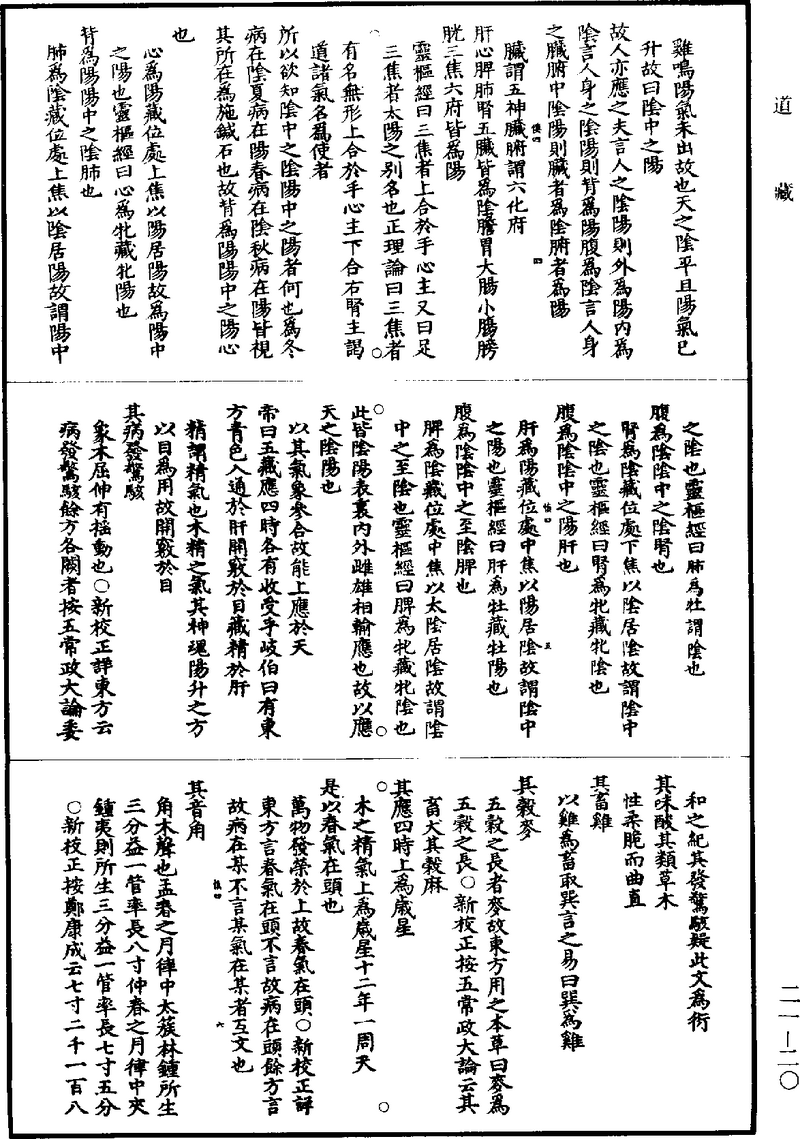 道藏
雞鳴陽氣未出故也天之陰平旦陽氣已
升故曰陰中之陽
故人亦應之夫言人之陰陽則外爲陽内爲
陰言人身之陰陽則背爲陽腹爲陰言人身
之臟腑中陰陽則臟者爲陰腑者爲陽
臟謂五神臟腑謂六化府
肝心脾肺腎五臟皆爲陰膽胃大腸小腸膀
胱三焦六府皆爲陽
靈樞經曰三焦者上合於手心主又曰足
三焦者太陽之别名也正理論曰三焦者
有名無形上合於手心主下合右腎主謁
道諸氣名爲使者
所以欲知陰中之陰陽中之陽者何也爲冬
病在陰夏病在陽春病在陰秋病在陽皆視
其所在爲施鍼石也故背爲陽陽中之陽心
也
心爲陽藏位處上焦以陽居陽故爲陽中
之陽也靈樞經曰心爲牝藏牝陽也
背爲陽陽中之陰肺也
肺爲陰藏位處上焦以陰居陽故謂陽中
之陰也靈樞經曰肺爲牡謂陰也
腹爲陰陰中之陰腎也
腎爲陰藏位處下焦以陰居陰故謂陰中
之陰也靈樞經曰腎爲牝藏牝陰也
腹爲陰陰中之陽肝也
肝爲陽藏位處中焦以陽居陰故謂陰中
之陽也靈樞經曰肝爲牡藏牡陽也
腹爲陰陰中之至陰脾也
脾爲陰藏位處中焦以太陰居陰故謂陰
中之至陰也靈樞經曰脾爲牝藏牝陰也
此皆陰陽表裏内外雌雄相輸應也故以應
天之陰陽也
以其氣象參合故能上應於天
帝曰五藏應四時各有收受乎岐伯曰有東
方青色入通於肝開竅於目藏精於肝
精謂精氣也木精之氣其神魂陽升之方
以目爲用故開竅於目
其病發驚駭
象木屈伸有揺動也○新校正詳東方云
病發驚駭餘方各闕者按五常政大論委
和之紀其發驚駭疑此文爲衍
其味酸其類草木
性柔脆而曲直
其畜雞
以雞爲畜取巽言之易曰巽爲雞
其穀麥
五穀之長者麥故東方用之本草曰麥爲
五穀之長○新校正按五常政大論云其
畜犬其穀麻
其應四時上爲歲星
木之精氣上爲歲星十二年一周天
是以春氣在頭也
萬物發榮於上故春氣在頭○新校正詳
東方言春氣在頭不言故病在頭餘方言
故病在某不言某氣在某者互文也
其音角
角木聲也孟春之月律中太蔟林鍾所生
三分益一管率長八寸仲春之月律中夾
鍾夷則所生三分益一管率長七寸五分
○新校正按鄭康成云七寸二千一百八
二一—二〇